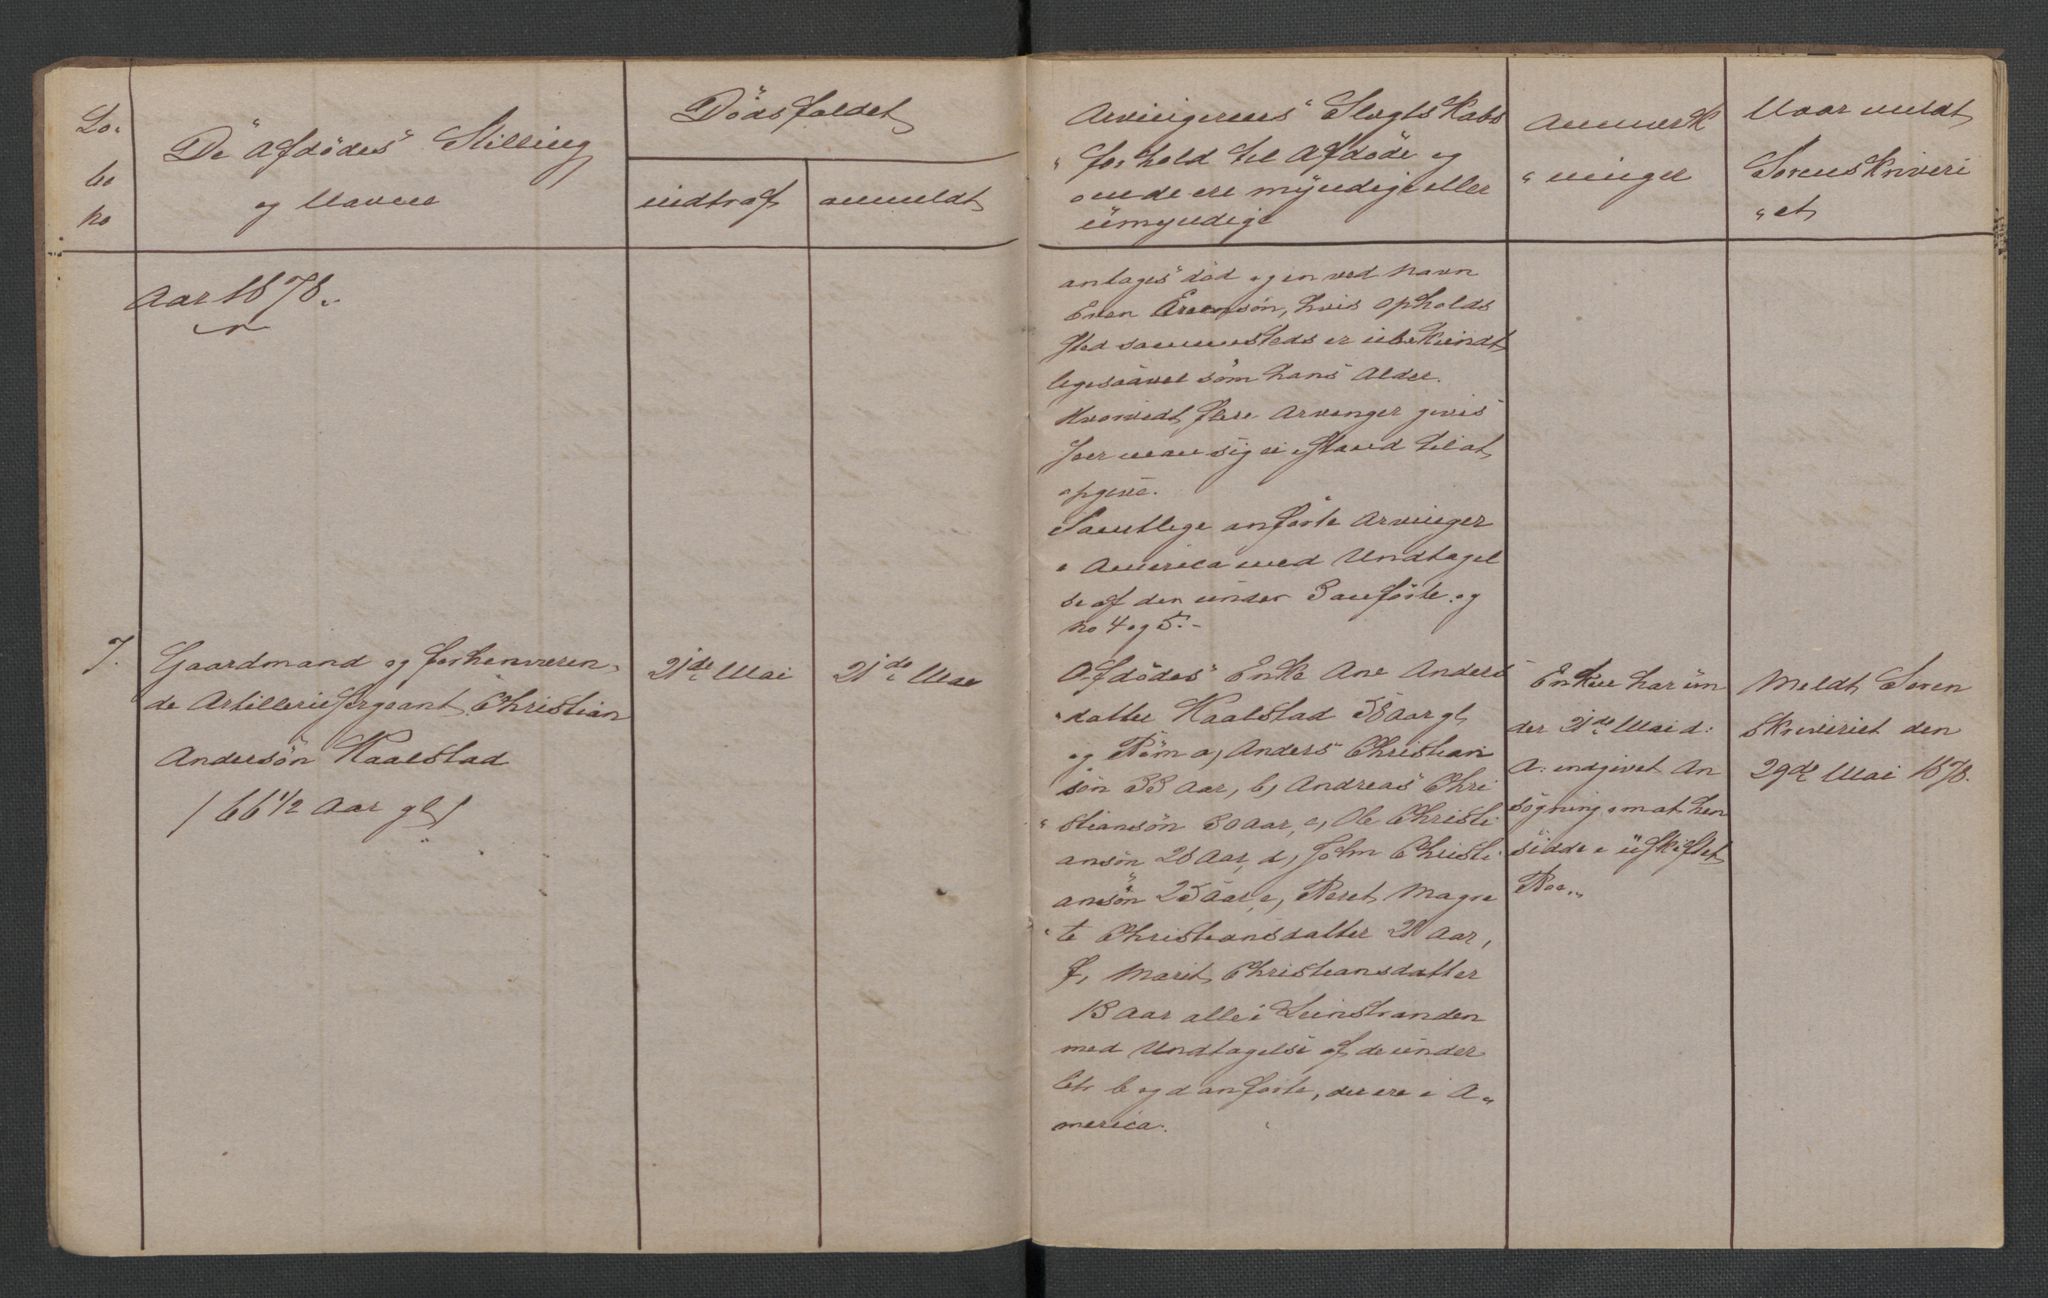 Lo-
be
No
De Afdødes Stilling
og Navne
Dödsfaldet
indtraf
anmeldt
Arvingernes Slegtskabs
"forhold til Afdöde og
om de ere myndige eller
ümyndige
Anmærk
"ninger
Naar meldt
Sorenskriveri
"et
Aar 1878.
antages död og en ved Navn
Even Evensön, hvis Opholds
sted sammesteds er übekiendt
ligesaavel som hans Alder.
Hvorvidt flere Arvinger gives
seer man sig ei istand til at
opgive.
Samtlige anförte Arvinger
i America med Undtagel
se af den under 3 anförte og
No 4 og 5.-
7.
Gaardmand og forhenværen-
de Artilleriesergeant Christian
Andersön Kaalstad
/ 66 1/2 Aar gl /
21de Mai
21de Mai
Afdödes Enke Ane Anders
"datter Kaalstad 58 Aar gl
og Börn a, Anders Christian
sön 33 Aar, b, Andreas Chri
"stiansön 30 Aar, c, Ole Christi
ansön 28 Aar, d, John Christi
ansön 25 Aar, e, Beret Magre
"te Christiansdatter 21 Aar,
f, Marit Christiansdatter
13 Aar alle i Leinstranden
med Undtagelse af de ünder
Litr b og d anförte, der ere i A-
merica.
Enken har ün
der 21de Mai d:
A: indgivet An
sögning om at hen
sidde i üskiftet
Boe.
Meldt Soren
skriveriet den
29de Mai 1878.